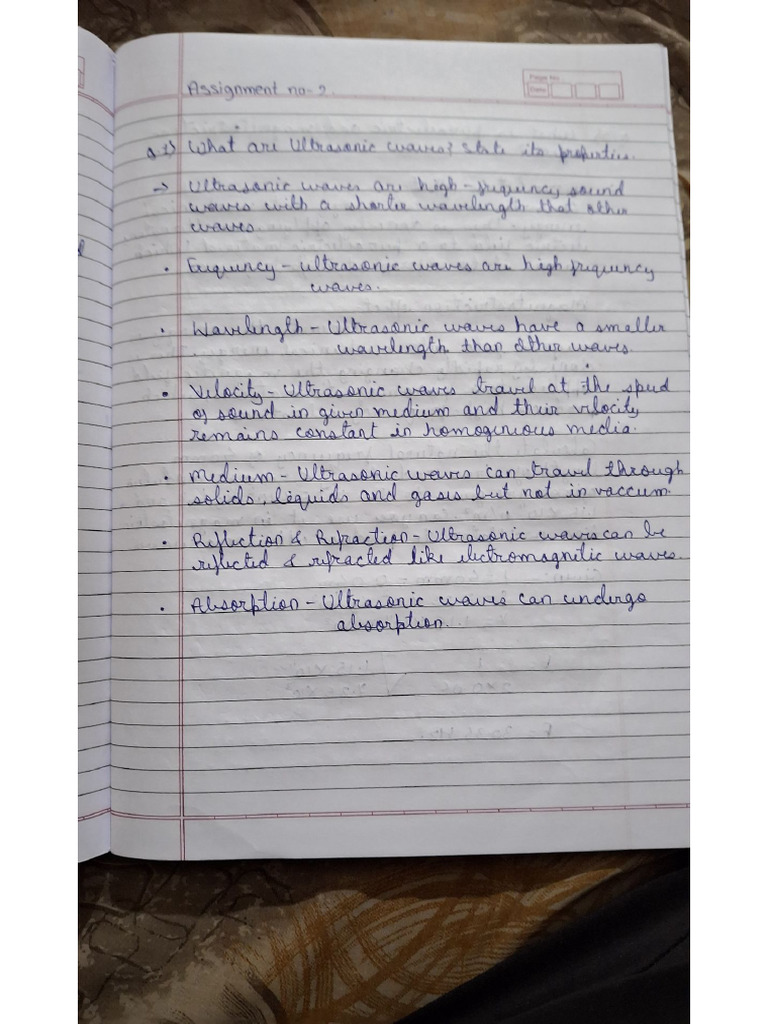 Page No.
Date
Assignment no-2.
Q.1) What are Ultrasonic waves? State its properties.
→ Ultrasonic waves are high-frequency sound
waves with a shorter wavelength that other
waves.
• Frequency - ultrasonic waves are high frequency
waves.
• Wavelength - Ultrasonic waves have a smaller
wavelength than other waves.
• Velocity - Ultrasonic waves travel at the speed
of sound in given medium and their velocity
remains constant in homogenious media.
• Medium - Ultrasonic waves can travel through
solids, liquids and gases but not in vaccum.
• Reflection & Refraction - Ultrasonic waves can be
reflected & refracted like electromagnetic waves.
• Absorption - Ultrasonic waves can undergo
absorption.